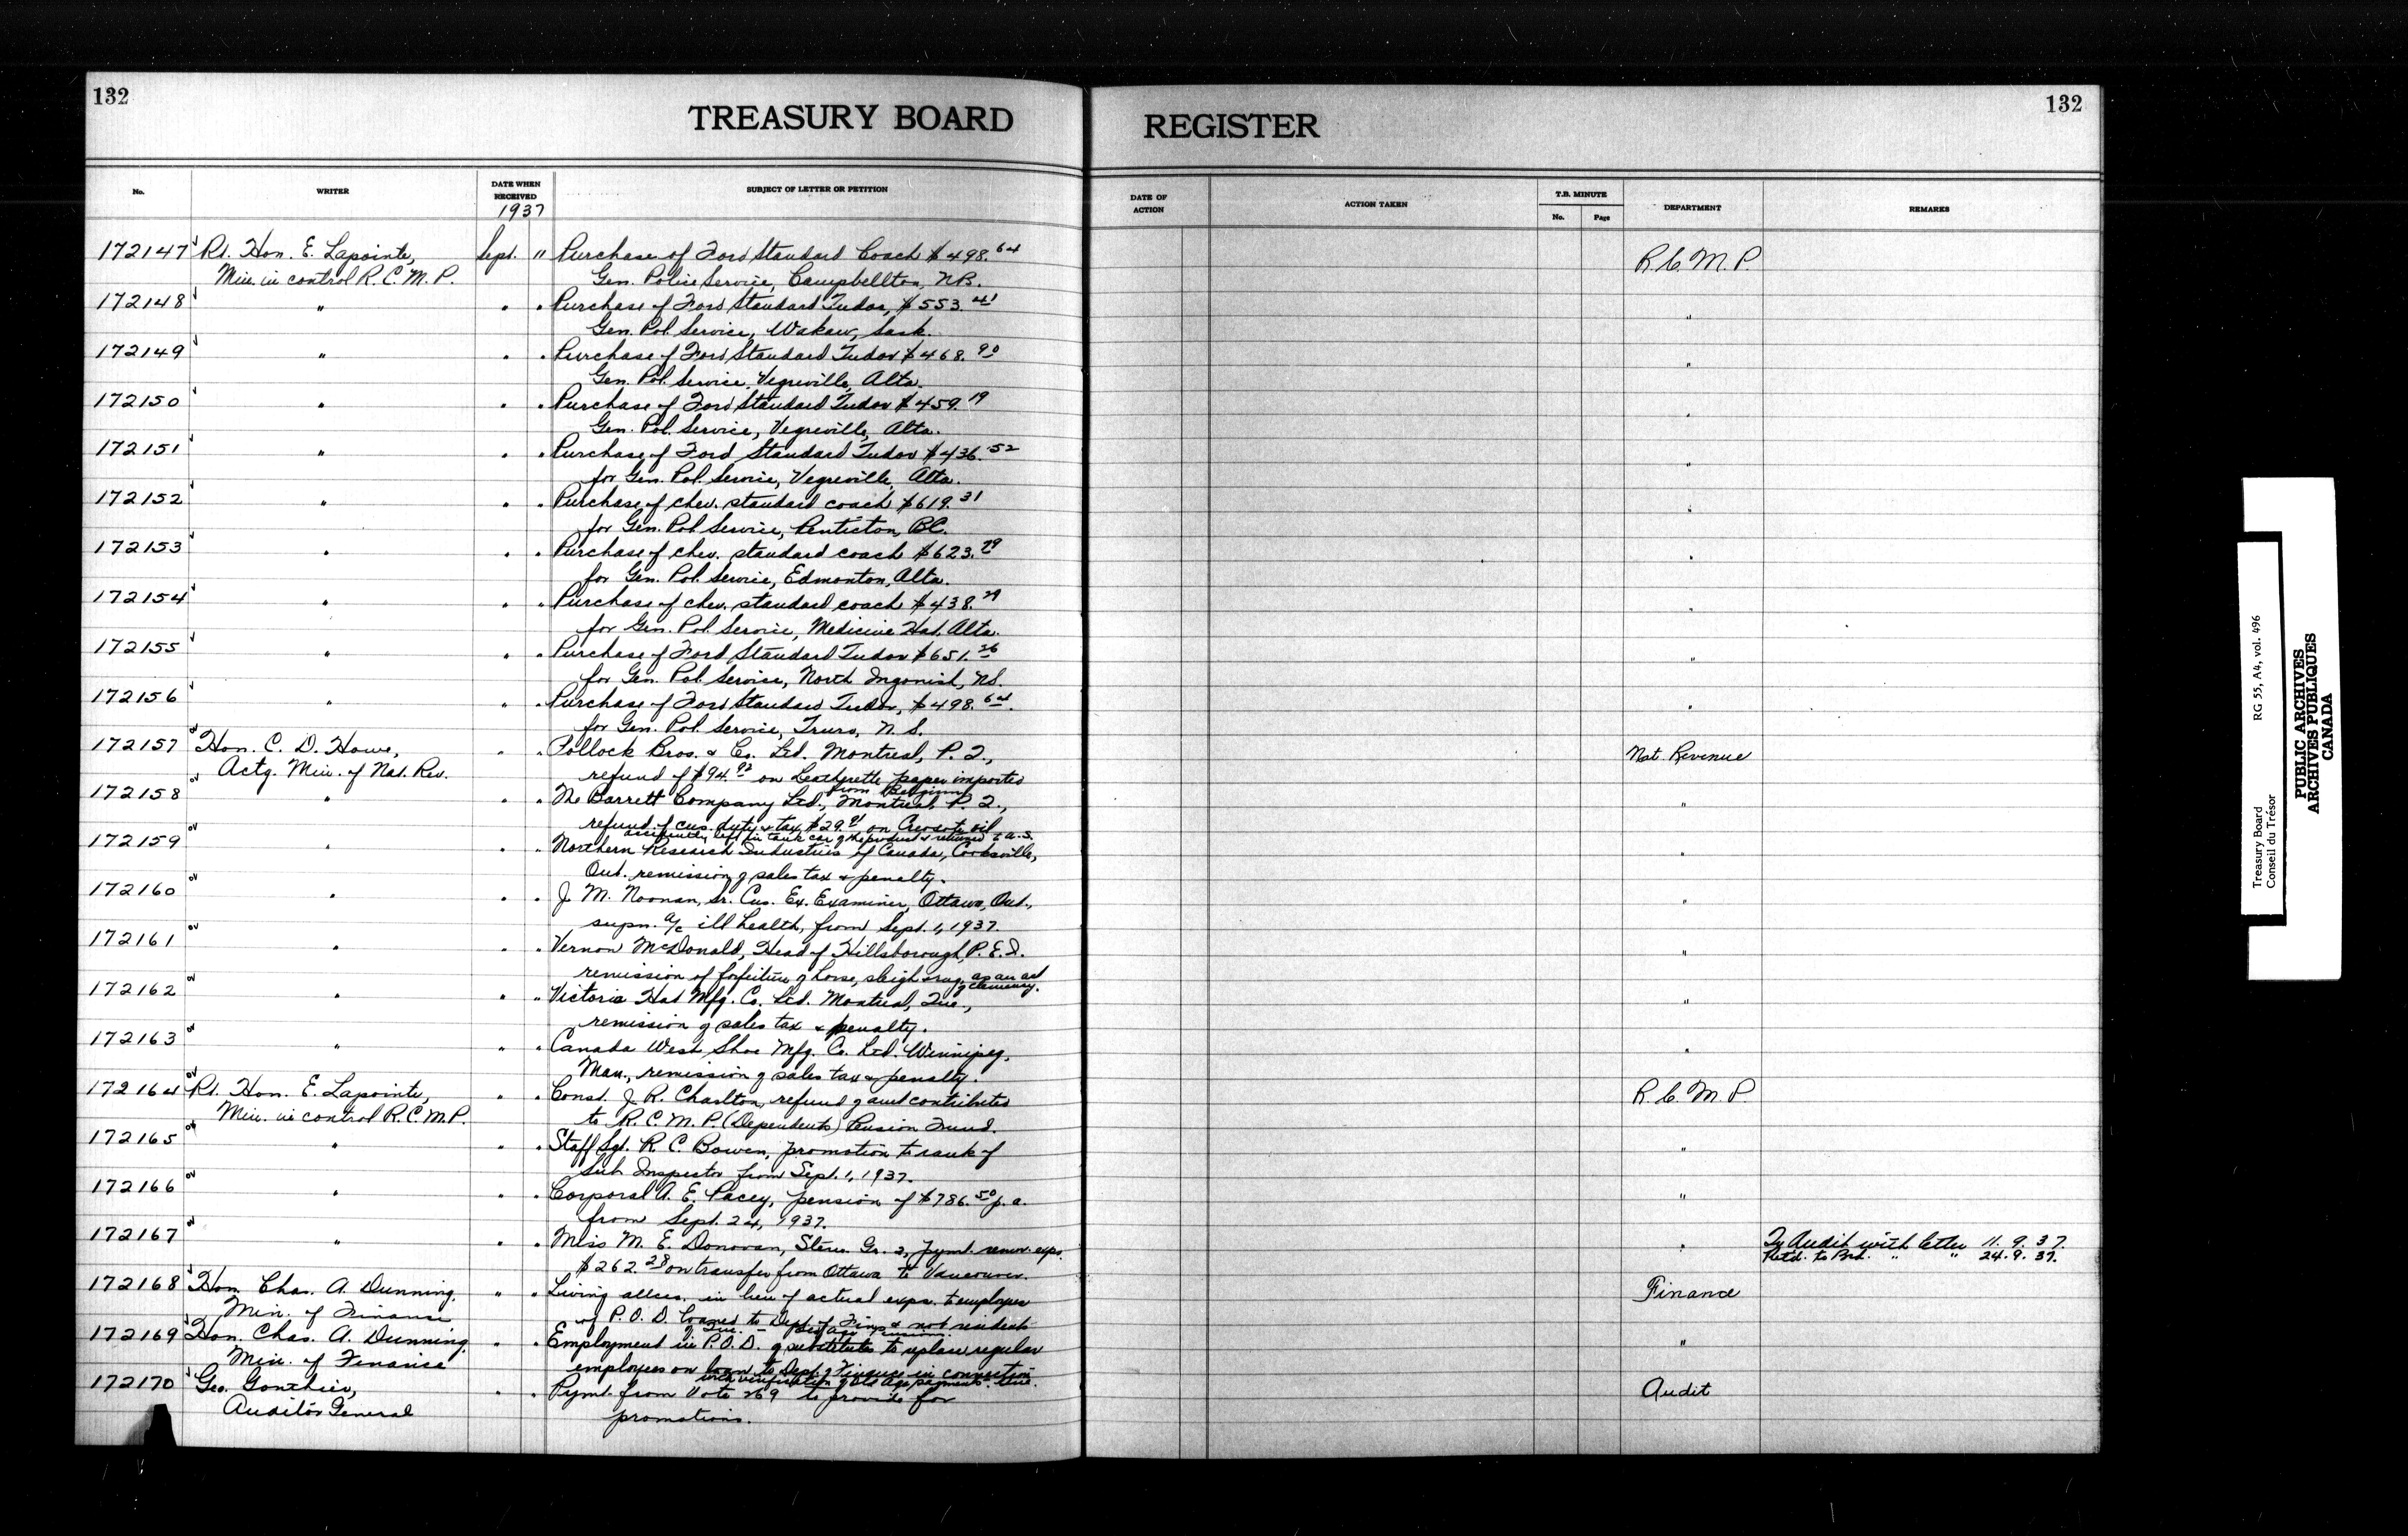 132
TREASURY BOARD
REGISTER
132
No.
WRITER
DATE WHEN RECEIVED
1937
SUBJECT OF LETTER OR PETITION
DATE OF ACTION
ACTION TAKEN
T.B. MINUTE
No.
Page
DEPARTMENT
REMARKS
172147 Rt. Hon. E. Lapointe, Sept. " Purchase of Ford Standard Coach $498.64 R.C.M.P.
Min. in control R.C.M.P. Gen. Police Service, Campbellton, N.B.
172148 " " " Purchase of Ford Standard Tudor, $553.41 "
Gen. Pol. Service, Wakaw, Sask.
172149 " " " Purchase of Ford Standard Tudor $468.90 "
Gen. Pol. Service, Vegreville, Alta.
172150 " " " Purchase of Ford Standard Tudor $459.19 "
Gen. Pol. Service, Vegreville, Alta.
172151 " " " Purchase of Ford Standard Tudor $436.52 "
for Gen. Pol. Service, Vegreville, Alta.
172152 " " " Purchase of chev. standard coach $619.31 "
for Gen. Pol. Service, Penticton, BC.
172153 " " " Purchase of chev. standard coach $623.79 "
for Gen. Pol. Service, Edmonton, Alta.
172154 " " " Purchase of chev. standard coach $438.29 "
for Gen. Pol. Service, Medicine Hat, Alta.
172155 " " " Purchase of Ford Standard Tudor $651.26 "
for Gen. Pol. Service, North Ingonish, NS.
172156 " " " Purchase of Ford Standard Tudor, $498.64. "
for Gen. Pol. Service, Truro, N.S.
172157 Hon. C. D. Howe, " " Pollock Bros. & Co. Ltd. Montreal, P.Q., Nat. Revenue
Actg. Min. of Nat. Rev. refund of $94.92 on Leatherette paper imported
from Belgium
172158 " " " The Barrett Company Ltd., Montreal, P.Q., "
refund of cus. duty & tax $29.91 on Creosote oil
left in tank car of the product & returned to U.S.
172159 " " " Northern Research Industries of Canada, Cooksville, "
Ont. remission of sales tax & penalty.
172160 " " " J. M. Noonan, Sr. Cus. Ex. Examiner, Ottawa, Ont., "
supn. a/c ill health, from Sept. 1, 1937.
172161 " " " Vernon McDonald, Head of Hillsborough, P.E.I. "
remission of forfeiture of horse, sleigh & rug, as an act
of clemency.
172162 " " " Victoria Hat Mfg. Co. Ltd. Montreal, Que., "
remission of sales tax & penalty.
172163 " " " Canada West Shoe Mfg. Co. Ltd. Winnipeg, "
Man., remission of sales tax & penalty.
172164 Rt. Hon. E. Lapointe, " " Const. J. R. Charlton, refund of amt contributed R.C.M.P.
Min. in control R.C.M.P. to R.C.M.P. (Dependents) Pension Fund.
172165 " " " Staff Sgt. R. C. Bowen, promotion to rank of "
Sub Inspector from Sept. 1, 1937.
172166 " " " Corporal A. E. Pacey, pension of $786.50 p.a. "
from Sept. 24, 1937.
172167 " " " Miss M. E. Donovan, Steno. Gr. 2, pymt. remov. exps. " To Audit with letter 11.9.37.
$262.28 on transfer from Ottawa to Vancouver. Retd. to Brd. " " 24.9.37.
172168 Hon. Chas. A. Dunning, " " Living allces. in lieu of actual exps. to employees Finance
Min. of Finance of P.O.D. loaned to Dept. of Fin. & not resident
of Que. - Old Age Pensions.
172169 Hon. Chas. A. Dunning, " " Employment in P.O.D. of substitutes to replace regular "
Min. of Finance employees on loan to Dept. of Finance in connection
with verification of Old Age payments. Que.
172170 Geo. Gonthier, " " Pymt. from Vote 269 to provide for Audit
Auditor General promotions.
Treasury Board RG 55, A4, vol. 496
Conseil du Trésor
PUBLIC ARCHIVES
ARCHIVES PUBLIQUES
CANADA